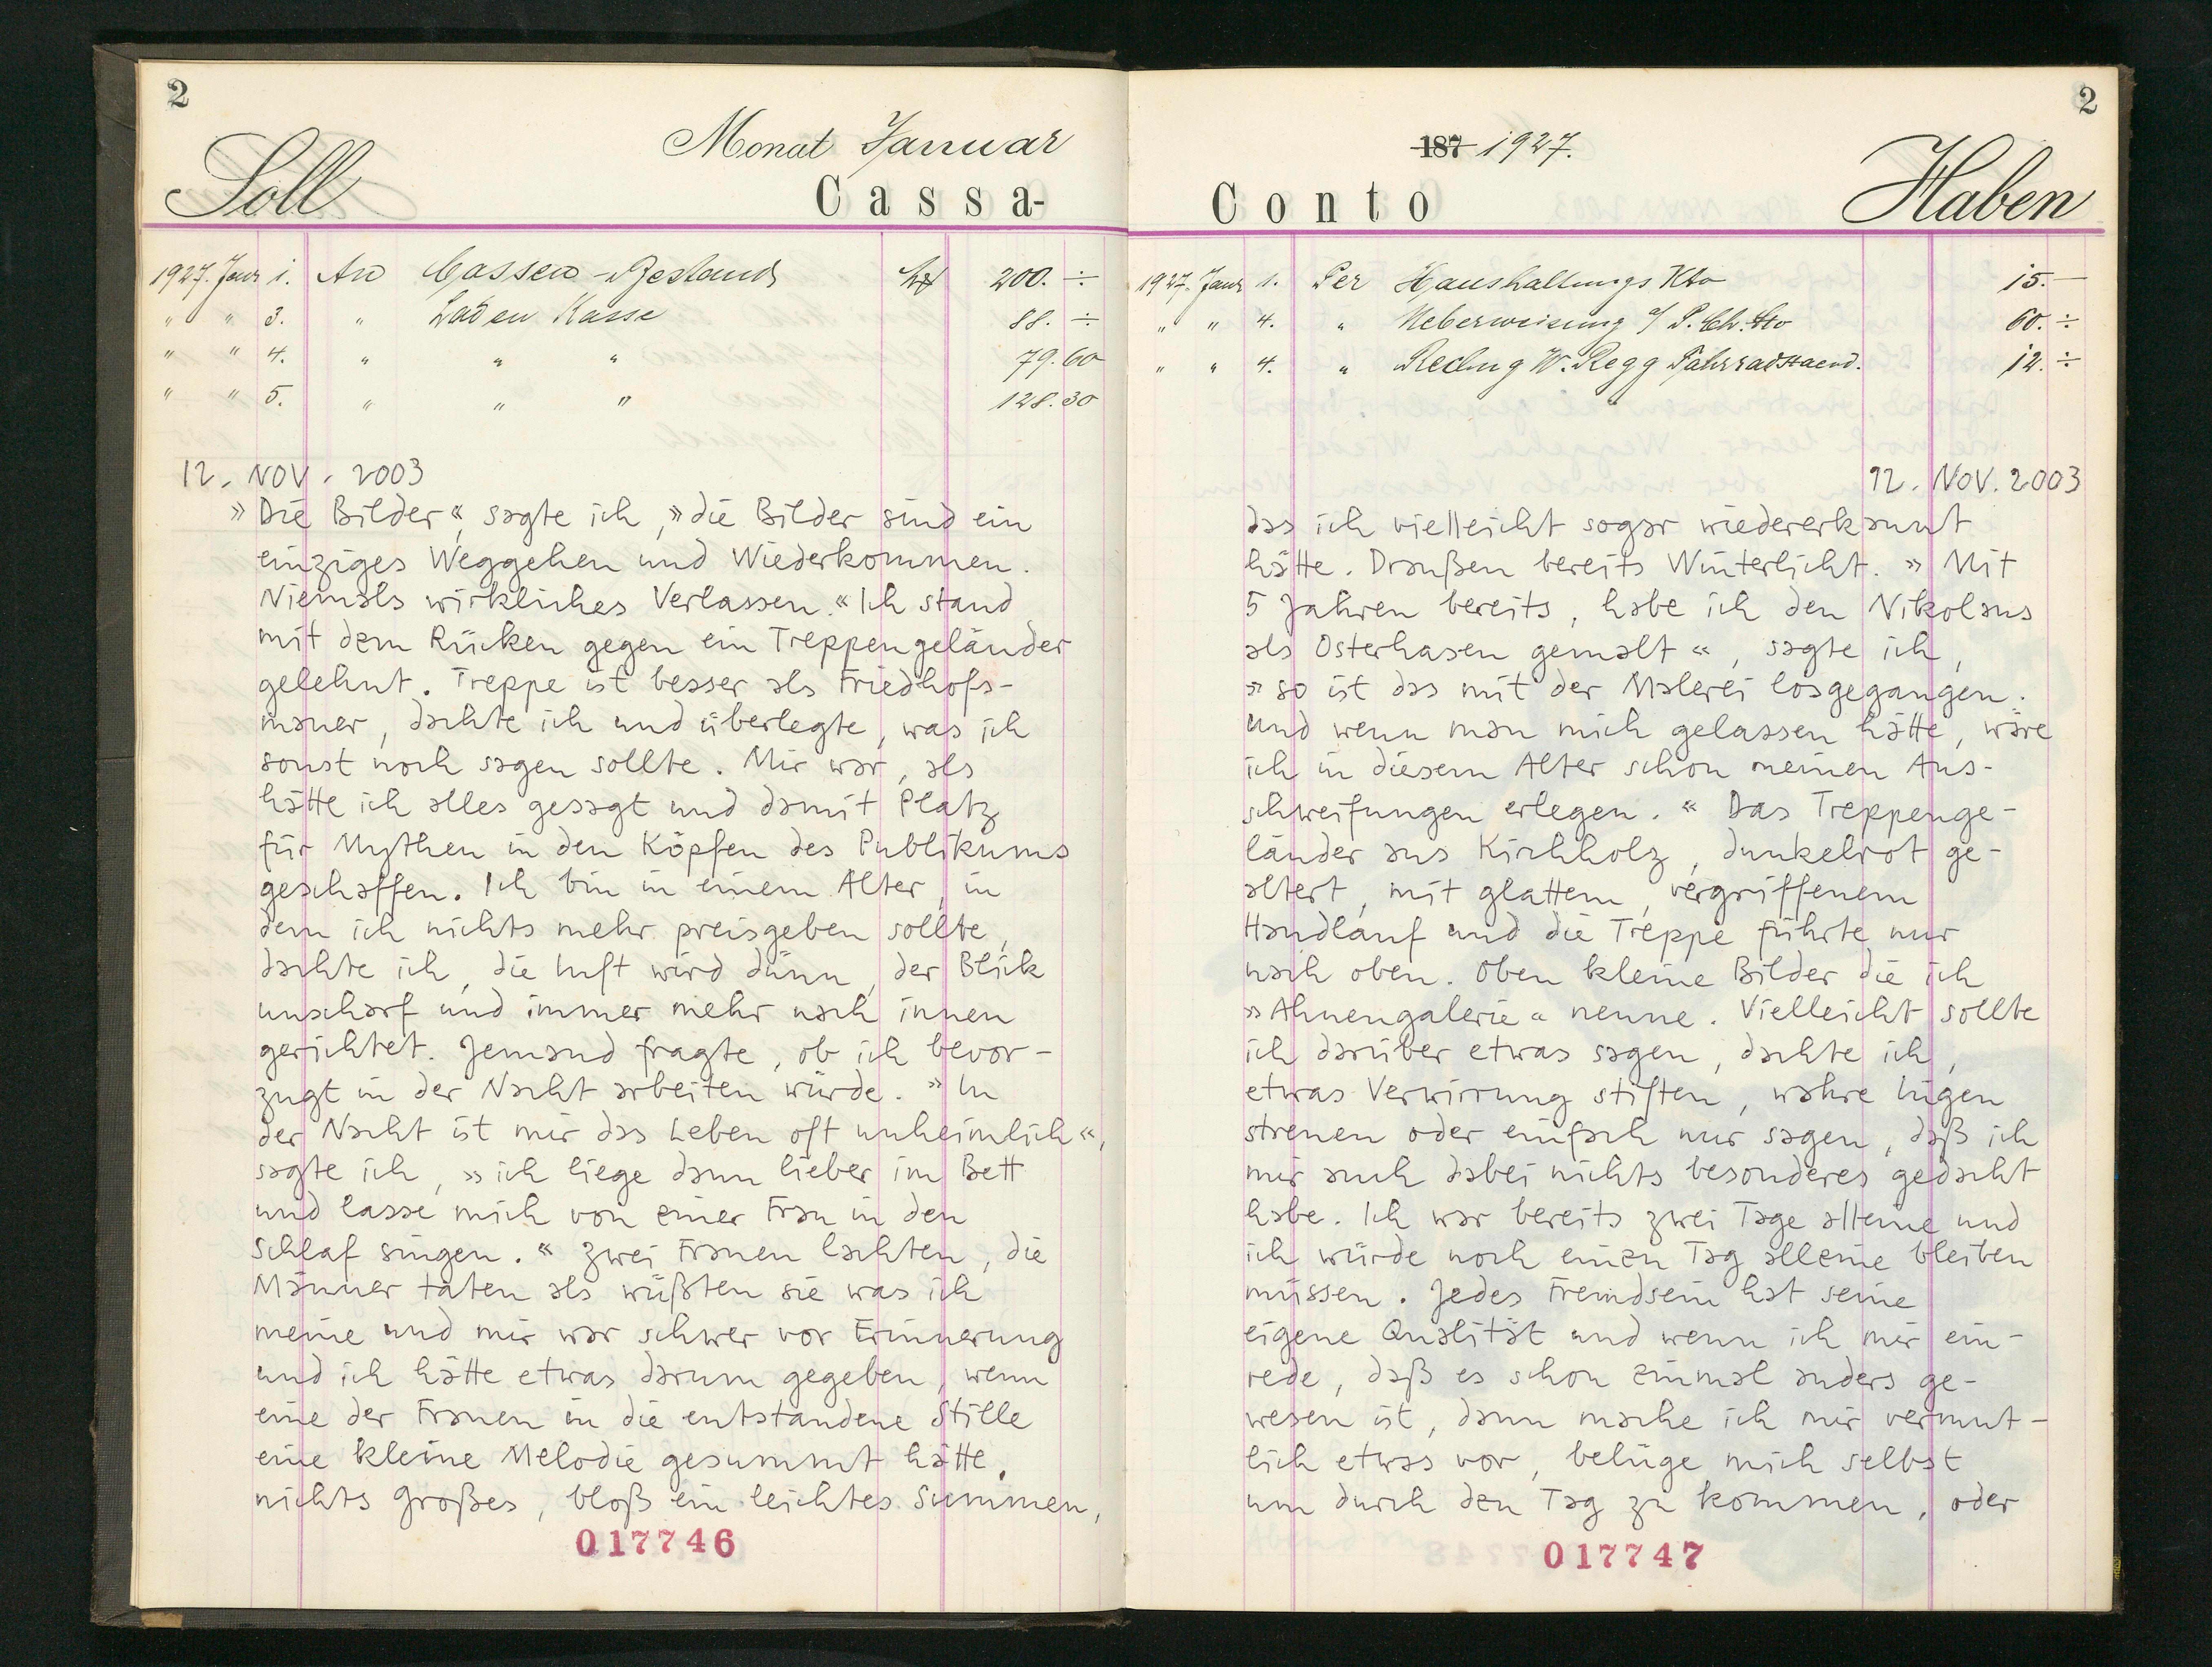 2
Soll
Monat Januar
Cassa-
1927. Janr 1. An Cassen-Bestand 200. ÷
" " 3. " Laden Kasse 88. ÷
" " 4. " " " 79.60
" " 5. " " " 128.30
12. NOV. 2003
»Die Bilder«, sagte ich, »die Bilder sind ein
einziges Weggehen und Wiederkommen.
Niemals wirkliches Verlassen.« Ich stand
mit dem Rücken gegen ein Treppengeländer
gelehnt. Treppe ist besser als Friedhofs-
mauer, dachte ich und überlegte, was ich
sonst noch sagen sollte. Mir war, als
hätte ich alles gesagt und damit Platz
für Mythen in den Köpfen des Publikums
geschaffen. Ich bin in einem Alter, in
dem ich nichts mehr preisgeben sollte,
dachte ich, die Luft wird dünn, der Blick
unscharf und immer mehr nach innen
gerichtet. Jemand fragte, ob ich bevor-
zugt in der Nacht arbeiten würde. »In
der Nacht ist mir das Leben oft unheimlich«,
sagte ich, »ich liege dann lieber im Bett
und lasse mich von einer Frau in den
Schlaf singen.« Zwei Frauen lachten, die
Männer taten als wüßten sie was ich
meine und mir war schwer vor Erinnerung
und ich hätte etwas darum gegeben, wenn
eine der Frauen in die entstandene Stille
eine kleine Melodie gesummt hätte,
nichts großes, bloß ein leichtes Summen,
017746
2
187 1927.
Conto
Haben
1927. Janr 1. Per Haushaltungs Kto 15.—
" " 4. " Ueberweisung a/ P. Ch. Kto 60. ÷
" " 4. " Rechng W. Regg Fahrradstaend. 12. ÷
12. NOV. 2003
das ich vielleicht sogar wiedererkannt
hätte. Draußen bereits Winterlicht. »Mit
5 Jahren bereits, habe ich den Nikolaus
als Osterhasen gemalt«, sagte ich,
»so ist das mit der Malerei losgegangen.
und wenn man mich gelassen hätte, wäre
ich in diesem Alter schon meinen Aus-
schweifungen erlegen.« Das Treppenge-
länder aus Kirchholz, dunkelrot ge-
altert, mit glattem, vergriffenem
Handlauf und die Treppe führte nur
nach oben. Oben kleine Bilder die ich
»Ahnengalerie« nenne. Vielleicht sollte
ich darüber etwas sagen, dachte ich,
etwas Verwirrung stiften, wahre Lügen
streuen oder einfach nur sagen, daß ich
mir auch dabei nichts besonderes gedacht
habe. Ich war bereits zwei Tage alleine und
ich würde noch einen Tag alleine bleiben
müssen. Jedes Fremdsein hat seine
eigene Qualität und wenn ich mir ein-
rede, daß es schon einmal anders ge-
wesen ist, dann mache ich mir vermut-
lich etwas vor, belüge mich selbst
um durch den Tag zu kommen, oder
017747